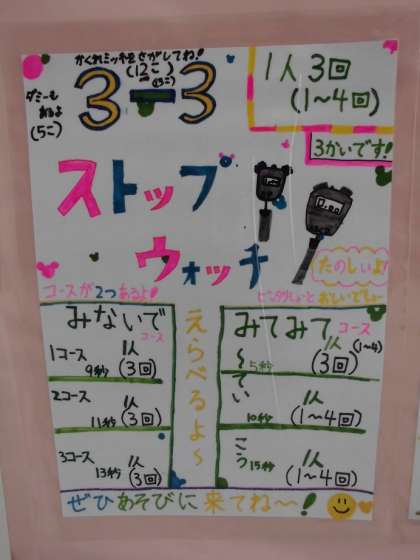 かくれミッキをさがしてね!
(12こ)
ダミーも
あるよ
(5こ)
3-3
1人 3回
(1〜4回)
3かいです!
ストップ
ウォッチ
たのしいよ!
コースが2つあるよ!
みないで
コース
1コース 1人
9秒 (3回)
2コース 1人
11秒 (3回)
3コース 1人
13秒 (3回)
えらべるよ〜
みてみて
コース
1人 (1〜4)
5秒 (3回)
1人
10秒 (1〜4回)
1人
15秒 (1〜4回)
ぜひあそびに来てね〜!